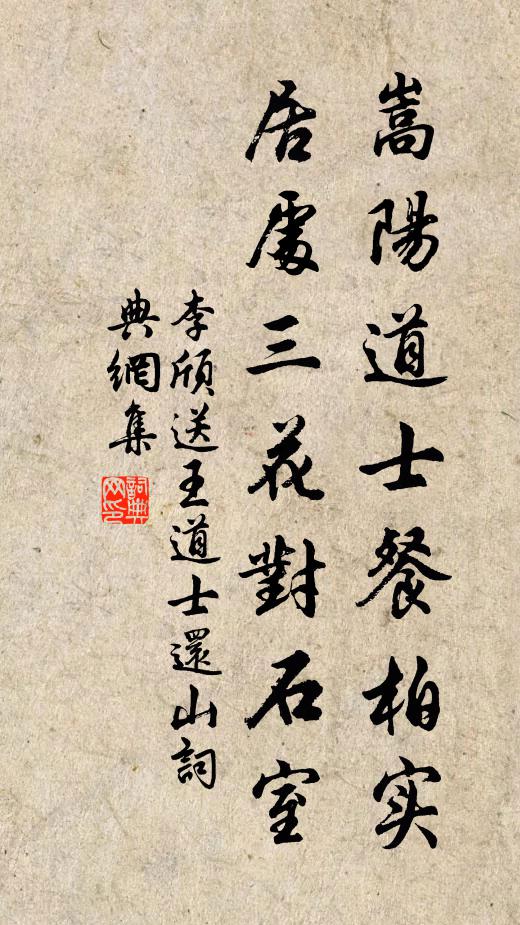 嵩陽道士餐柏实
居處三花對石室
李頎送王道士還山詞
典網集
詞典
网印